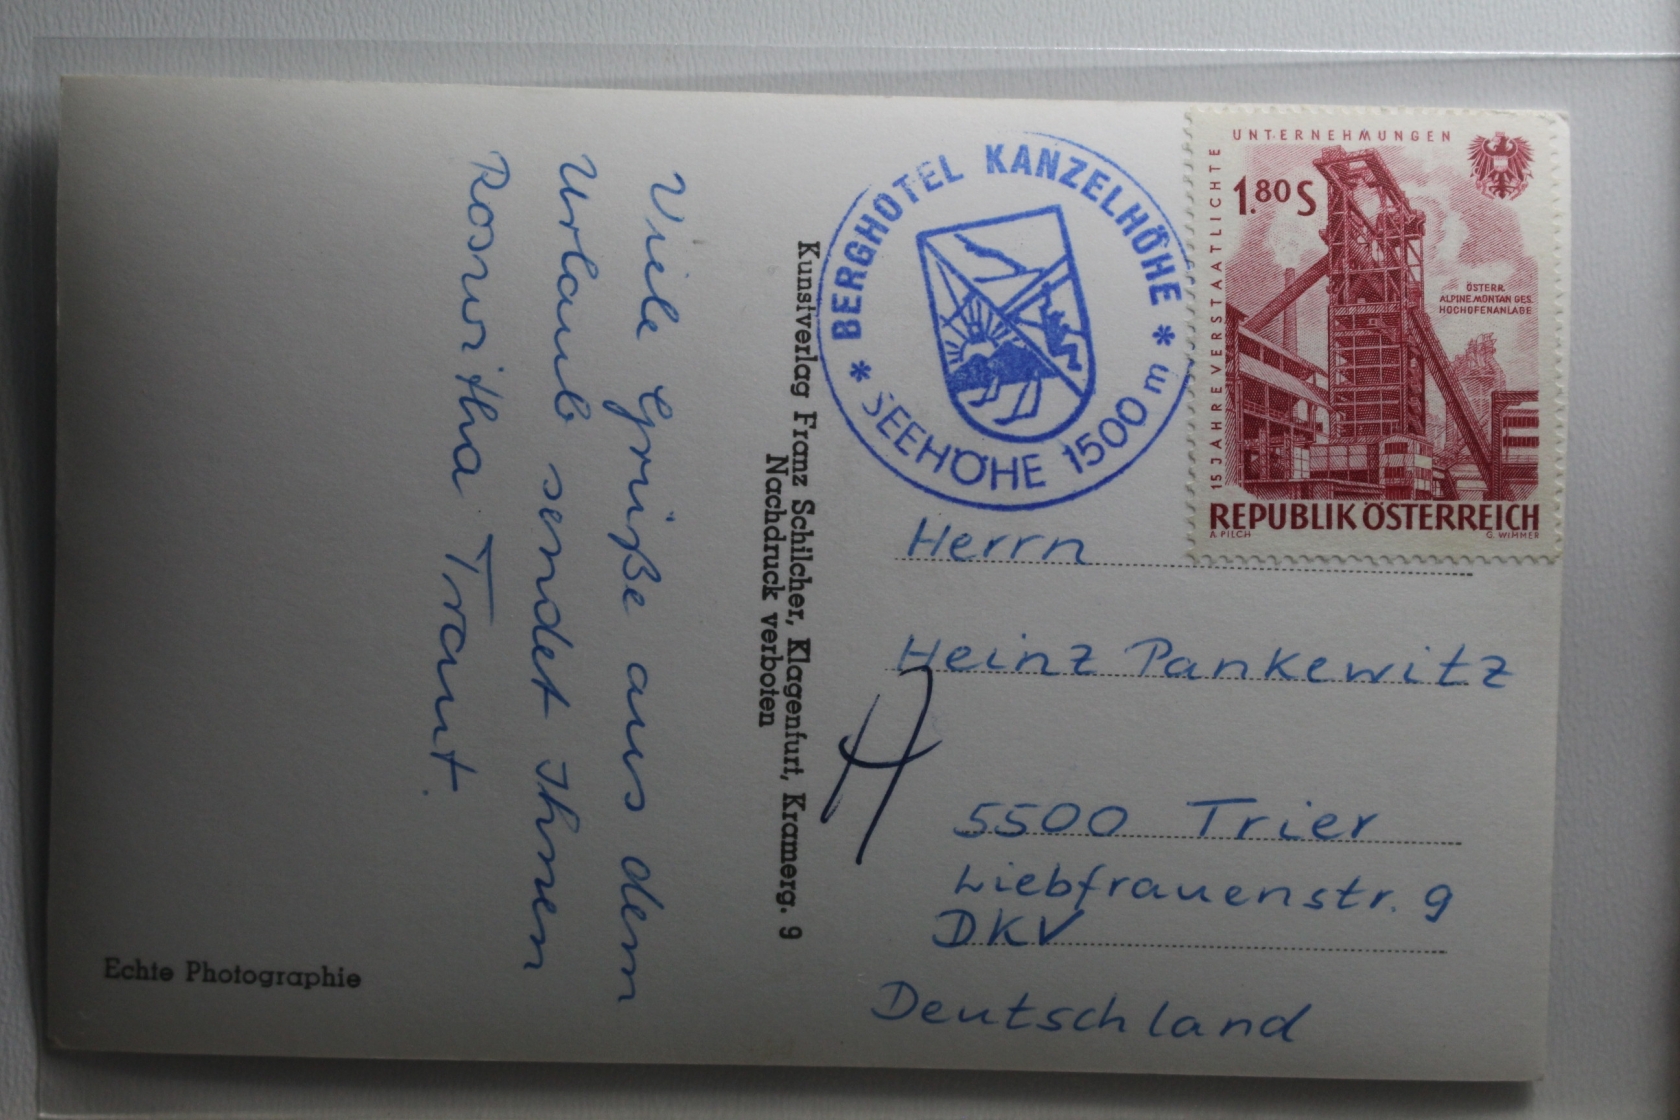 Viele Grüße aus dem
Urlaub sendet Ihnen
Roswitha Traut.
Echte Photographie
Kunstverlag Franz Schilcher, Klagenfurt, Kramerg. 9
Nachdruck verboten
* BERGHOTEL KANZELHÖHE *
SEEHÖHE 1500 m
15 JAHRE VERSTAATLICHTE
UNTERNEHMUNGEN
1.80 S
ÖSTERR.
ALPINE MONTAN GES.
HOCHOFENANLAGE
REPUBLIK ÖSTERREICH
A. PILCH
G. WIMMER
Herrn
Heinz Pankewitz
5500 Trier
Liebfrauenstr. 9
DKV
Deutschland